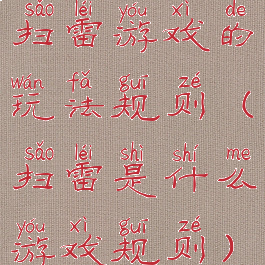 sǎo léi yóu xì de
扫雷游戏的
wán fǎ guī zé
玩法规则（
sǎo léi shì shí me
扫雷是什么
yóu xì guī zé
游戏规则）